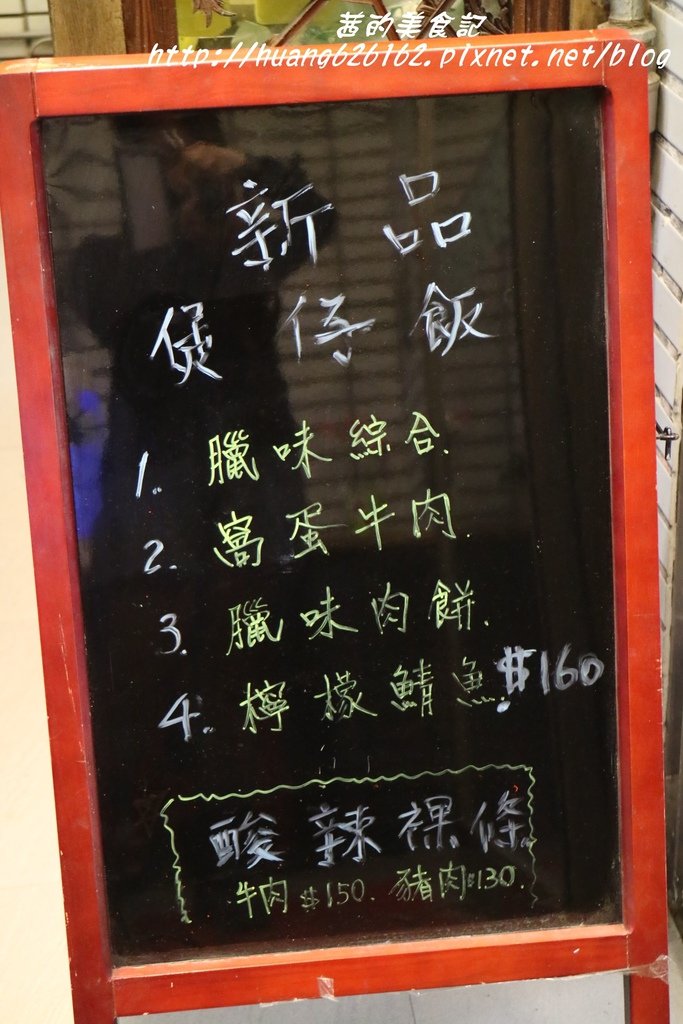 茜的美食記
http://huang626162.pixnet.net/blog
新品
煲仔飯
1. 臘味綜合.
2. 窩蛋牛肉.
3. 臘味肉餅.
4. 檸檬鯖魚. $160
酸辣粿條
牛肉$150. 豬肉$130.